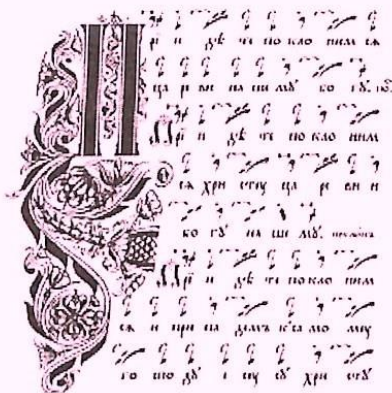 Прї и дѣ те по кло ним сѧ
ца ре ви на ше мꙋ бо гꙋ.
Прї и дѣ те по кло ним
сѧ хри стꙋ ца ре ви и
бо гꙋ на ше мꙋ.
Прї и дѣ те по кло ним
сѧ и при па демъ къ са мо мꙋ
го спо дꙋ і сꙋ сꙋ хри стꙋ